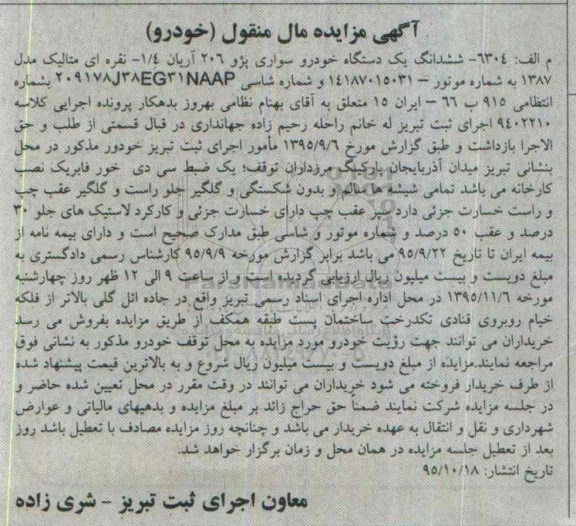 آگهی مزایده مال منقول (خودرو)
م الف: ۶۳۰۴- ششدانگ یک دستگاه خودرو سواری پژو ۲۰۶ آریان ۱/۴- نقره ای متالیک مدل
۱۳۸۷ به شماره موتور – ۱۴۱۸۷۰۱۵۰۳۱ و شماره شاسی ۲۰۹۱۷۸J۳۸EG۳۱NAAP بشماره
انتظامی ۹۱۵ ب ۶۶ – ایران ۱۵ متعلق به آقای بهنام نظامی بهروز بدهکار پرونده اجرایی کلاسه
۹۴۰۲۲۱۰ اجرای ثبت تبریز له خانم راحله رحیم زاده جهانداری در قبال قسمتی از طلب و حق
الاجرا بازداشت و طبق گزارش مورخ ۱۳۹۵/۹/۶ مأمور اجرای ثبت تبریز خودور مذکور در محل
بنشانی تبریز میدان آذربایجان پارکینگ مرزداران توقف؛ یک ضبط سی دی خور فابریک نصب
کارخانه می باشد تمامی شیشه ها سالم و بدون شکستگی و گلگیر جلو راست و گلگیر عقب چپ
و راست خسارت جزئی دارد سپر عقب چپ دارای خسارت جزئی و کارکرد لاستیک های جلو ۳۰
درصد و عقب ۵۰ درصد و شماره موتور و شاسی طبق مدارک صحیح است و دارای بیمه نامه از
بیمه ایران تا تاریخ ۹۵/۹/۲۲ می باشد برابر گزارش مورخه ۹۵/۹/۹ کارشناس رسمی دادگستری به
مبلغ دویست و بیست میلیون ریال ارزیابی گردیده است و از ساعت ۹ الی ۱۲ ظهر روز چهارشنبه
مورخه ۱۳۹۵/۱۱/۶ در محل اداره اجرای اسناد رسمی تبریز واقع در جاده ائل گلی بالاتر از فلکه
خیام روبروی قنادی تکدرخت ساختمان بست طبقه همکف از طریق مزایده بفروش می رسد
خریداران می توانند جهت رؤیت خودرو مورد مزایده به محل توقف خودرو مذکور به نشانی فوق
مراجعه نمایند.مزایده از مبلغ دویست و بیست میلیون ریال شروع و به بالاترین قیمت پیشنهاد شده
از طرف خریدار فروخته می شود خریداران می توانند در وقت مقرر در محل تعیین شده حاضر و
در جلسه مزایده شرکت نمایند ضمناً حق حراج زائد بر مبلغ مزایده و بدهیهای مالیاتی و عوارض
شهرداری و نقل و انتقال به عهده خریدار می باشد و چنانچه روز مزایده مصادف با تعطیل باشد روز
بعد از تعطیل جلسه مزایده در همان محل و زمان برگزار خواهد شد.
تاریخ انتشار: ۹۵/۱۰/۱۸
معاون اجرای ثبت تبریز – شری زاده